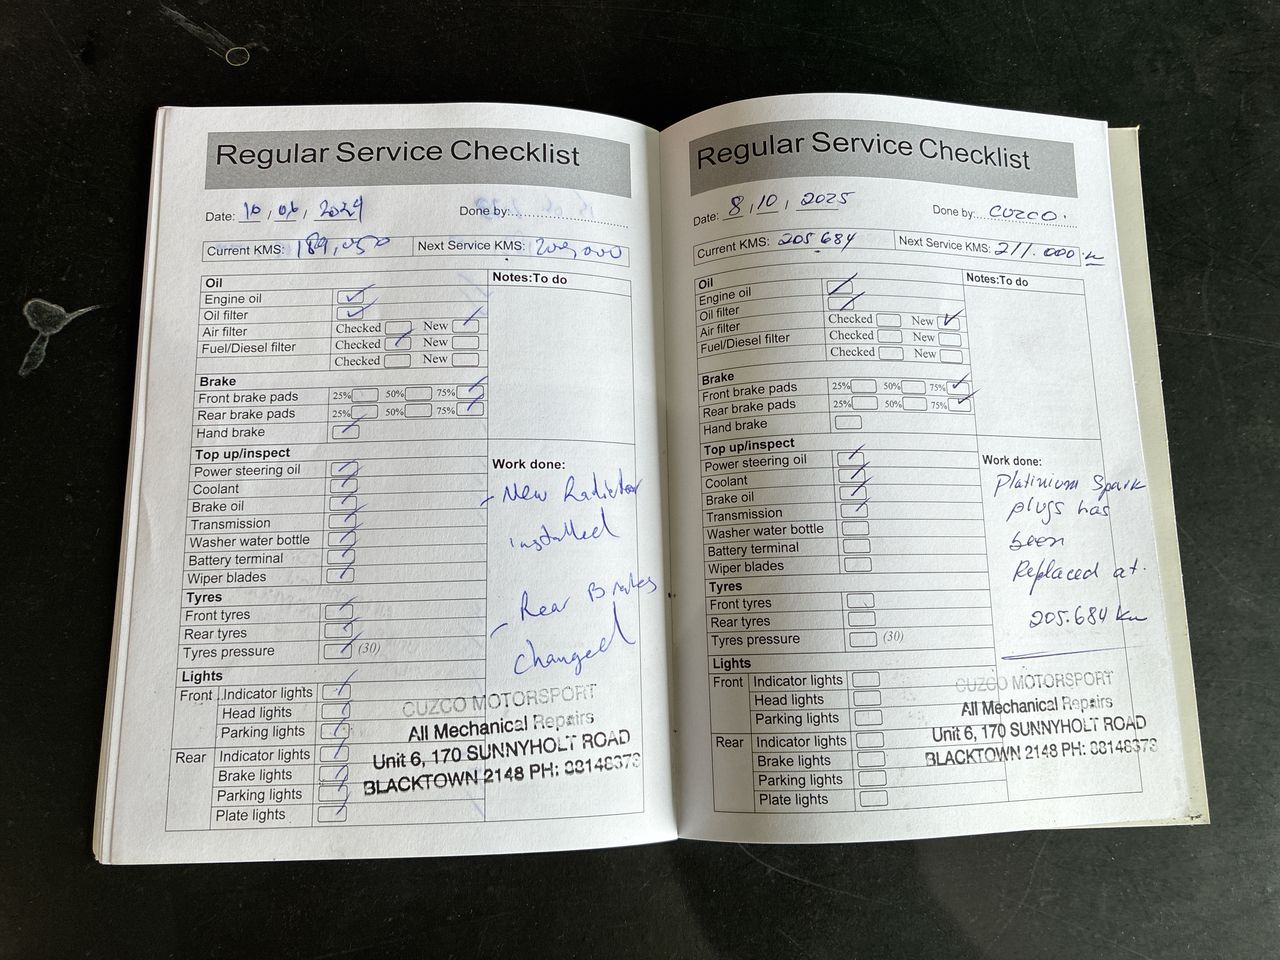 Regular Service Checklist
Date: 10, 06, 2024 Done by:
Current KMS: 189,050 Next Service KMS: 200,000
Oil Notes:To do
Engine oil
Oil filter
Air filter Checked New
Fuel/Diesel filter Checked New
Checked New
Brake
Front brake pads 25% 50% 75%
Rear brake pads 25% 50% 75%
Hand brake
Top up/inspect
Power steering oil
Coolant
Brake oil
Transmission
Washer water bottle
Battery terminal
Wiper blades
Tyres
Front tyres
Rear tyres
Tyres pressure (30)
Lights
Front Indicator lights
Head lights
Parking lights
Rear Indicator lights
Brake lights
Parking lights
Plate lights
Work done:
- New Radiator
installed
- Rear Brakes
changed
CUZCO MOTORSPORT
All Mechanical Repairs
Unit 6, 170 SUNNYHOLT ROAD
BLACKTOWN 2148 PH:
Regular Service Checklist
Date: 8, 10, 2025 Done by: CUZCO.
Current KMS: 205.684 Next Service KMS: 211.000 K
Oil Notes:To do
Engine oil
Oil filter
Air filter Checked New
Fuel/Diesel filter Checked New
Checked New
Brake
Front brake pads 25% 50% 75%
Rear brake pads 25% 50% 75%
Hand brake
Top up/inspect
Power steering oil
Coolant
Brake oil
Transmission
Washer water bottle
Battery terminal
Wiper blades
Tyres
Front tyres
Rear tyres
Tyres pressure (30)
Lights
Front Indicator lights
Head lights
Parking lights
Rear Indicator lights
Brake lights
Parking lights
Plate lights
Work done:
Platinium Spark
plugs has
been
Replaced at.
205.684 Km
CUZCO MOTORSPORT
All Mechanical Repairs
Unit 6, 170 SUNNYHOLT ROAD
BLACKTOWN 2148 PH: